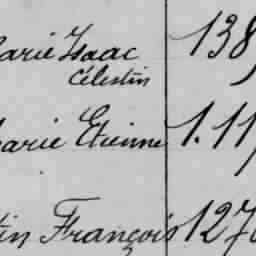 arie Isaac 138
Célestin
arie Etienne 1.11
tin François 127